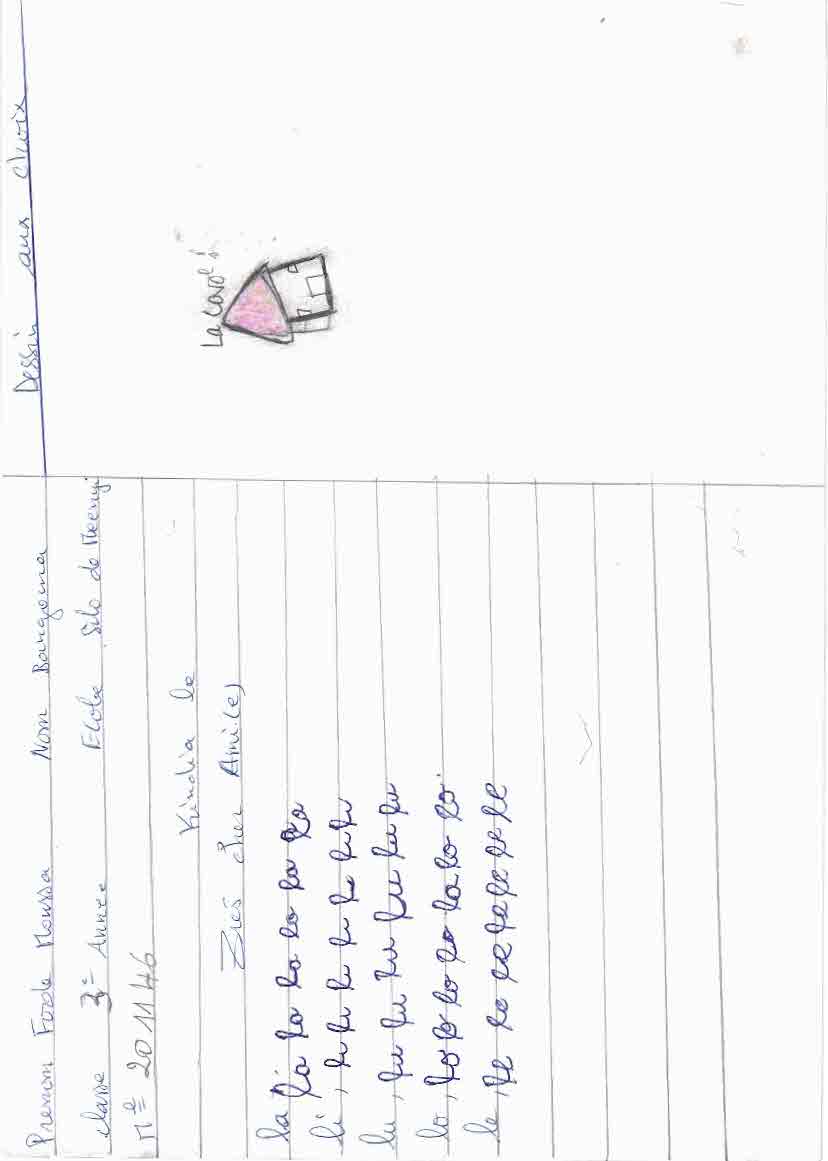 Prenom Fode Moussa Nom Bangoura
Classe 3e Année Ecole Silo de
n° 201146
Kindia le
Zies cher Ami(e)
la, la la la la la la
li, li li li li li li li
lu, lu lu lu lu lu lu
lo, lo lo lo lo lo lo lo
le, le le le le le le le
Dessin aux choix
La